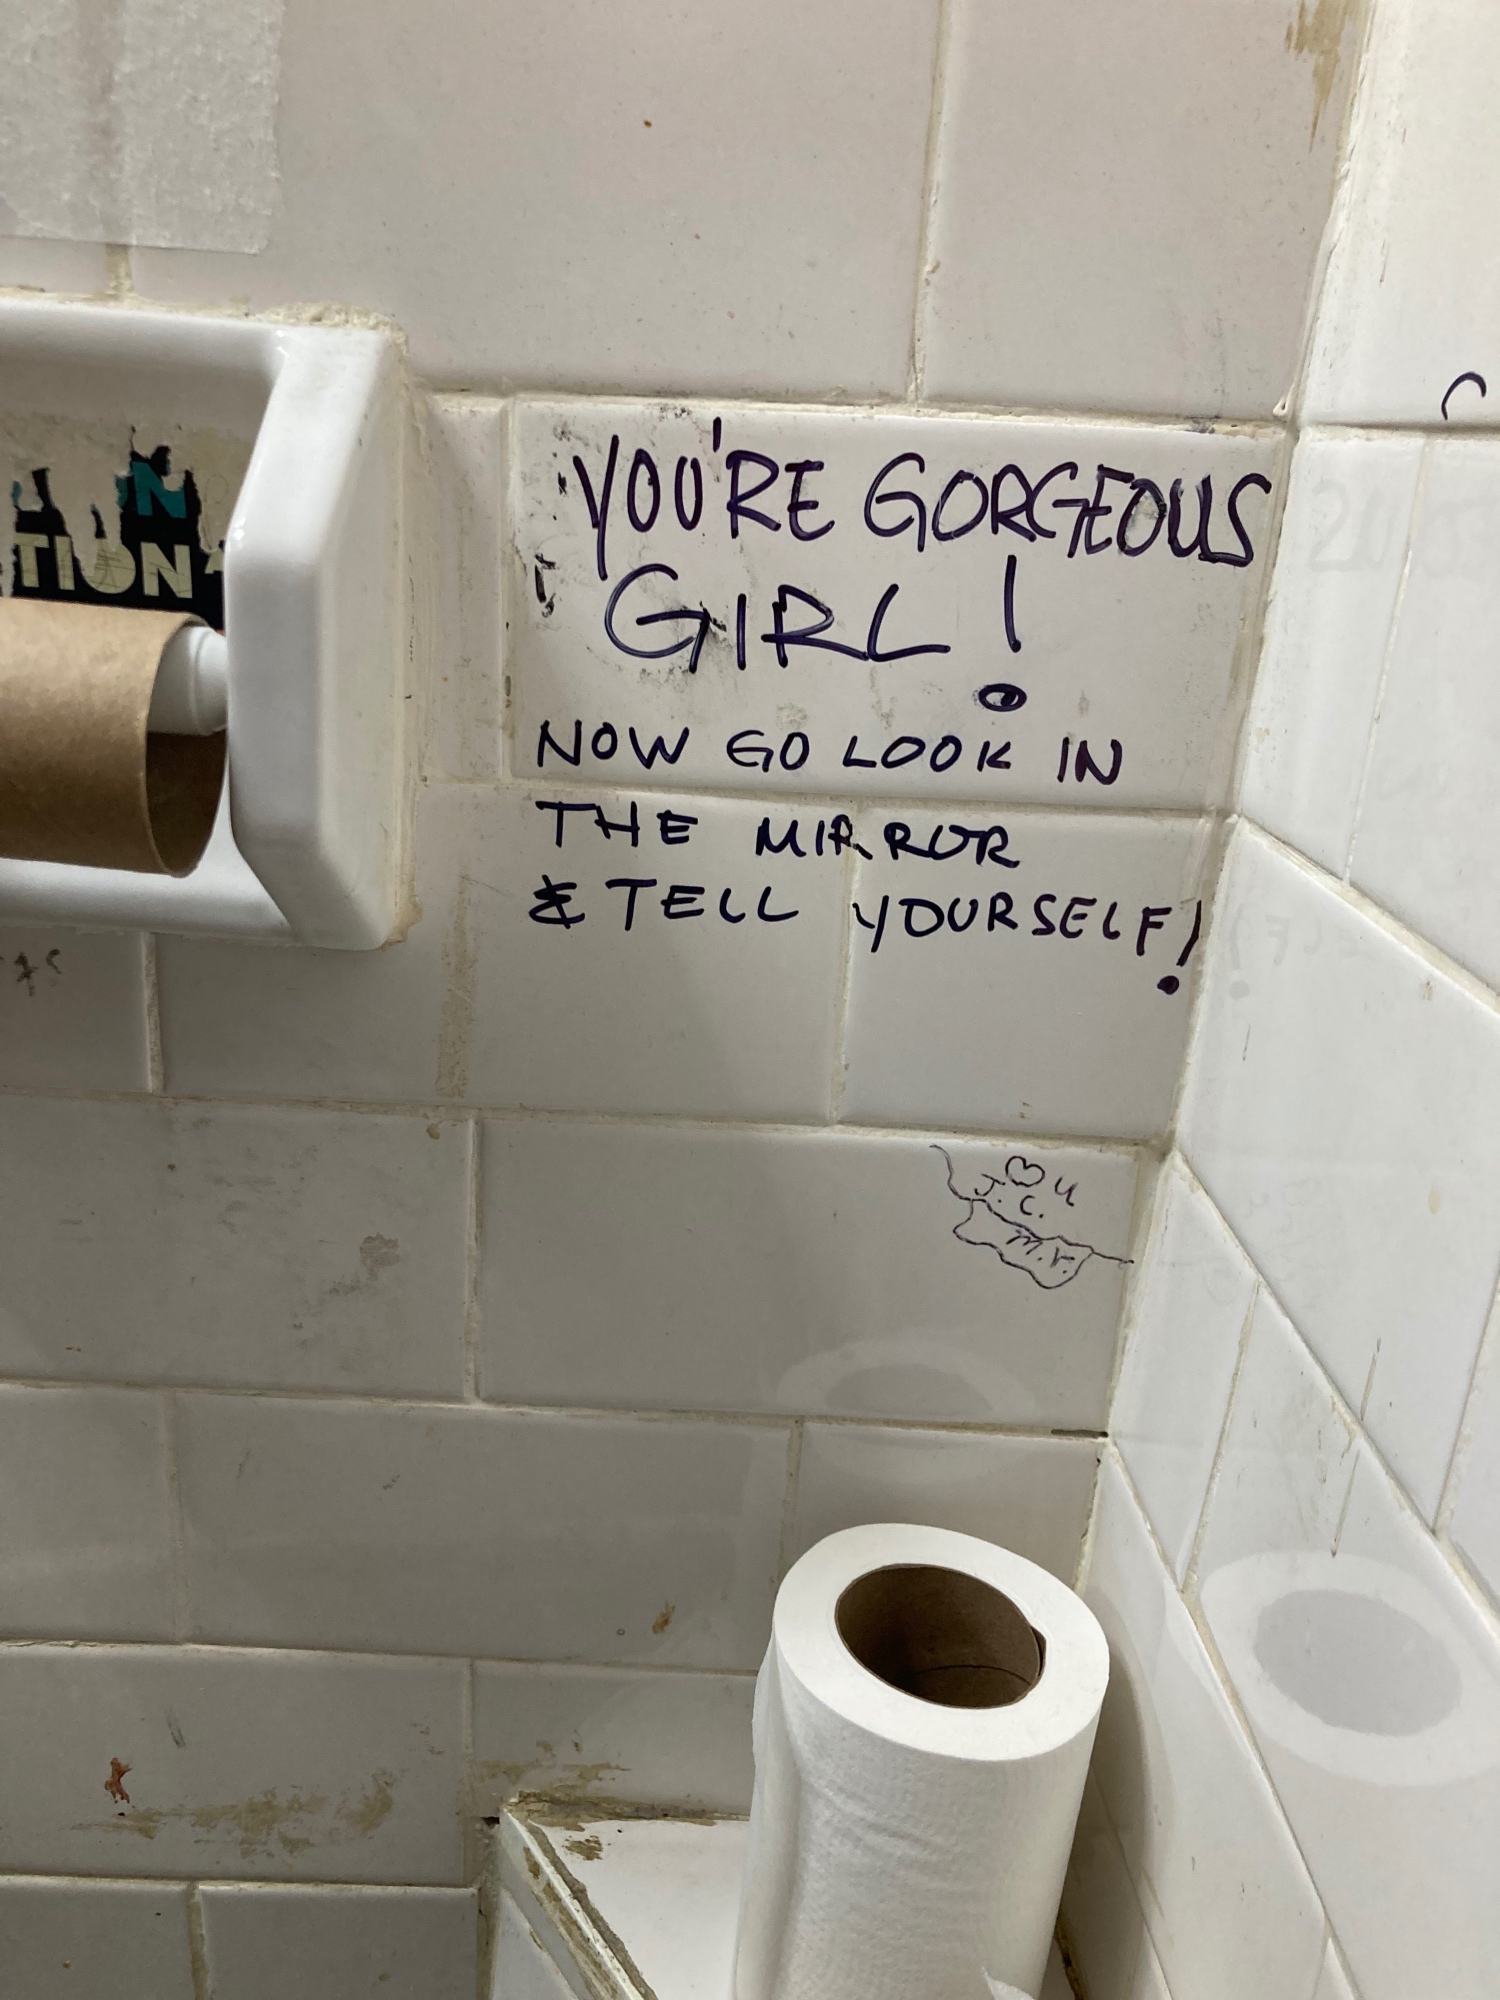 YOU'RE GORGEOUS
GIRL!
NOW GO LOOK IN
THE MIRROR
& TELL YOURSELF!
TION
♡ u
J. C.